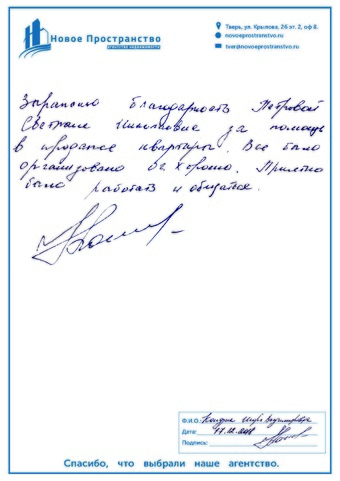 Новое Пространство
агентство недвижимости
Тверь, ул. Крылова, 26 эт. 2, оф 8.
novoeprostranstvo.ru
tver@novoeprostranstvo.ru
Выражаю благодарность Петровой
Светлане Николаевне за помощь
в продаже квартиры. Все было
организовано очень хорошо. Приятно
было работать и общаться.
Ф.И.О.
Дата: 17.12.
Подпись:
Спасибо, что выбрали наше агентство.